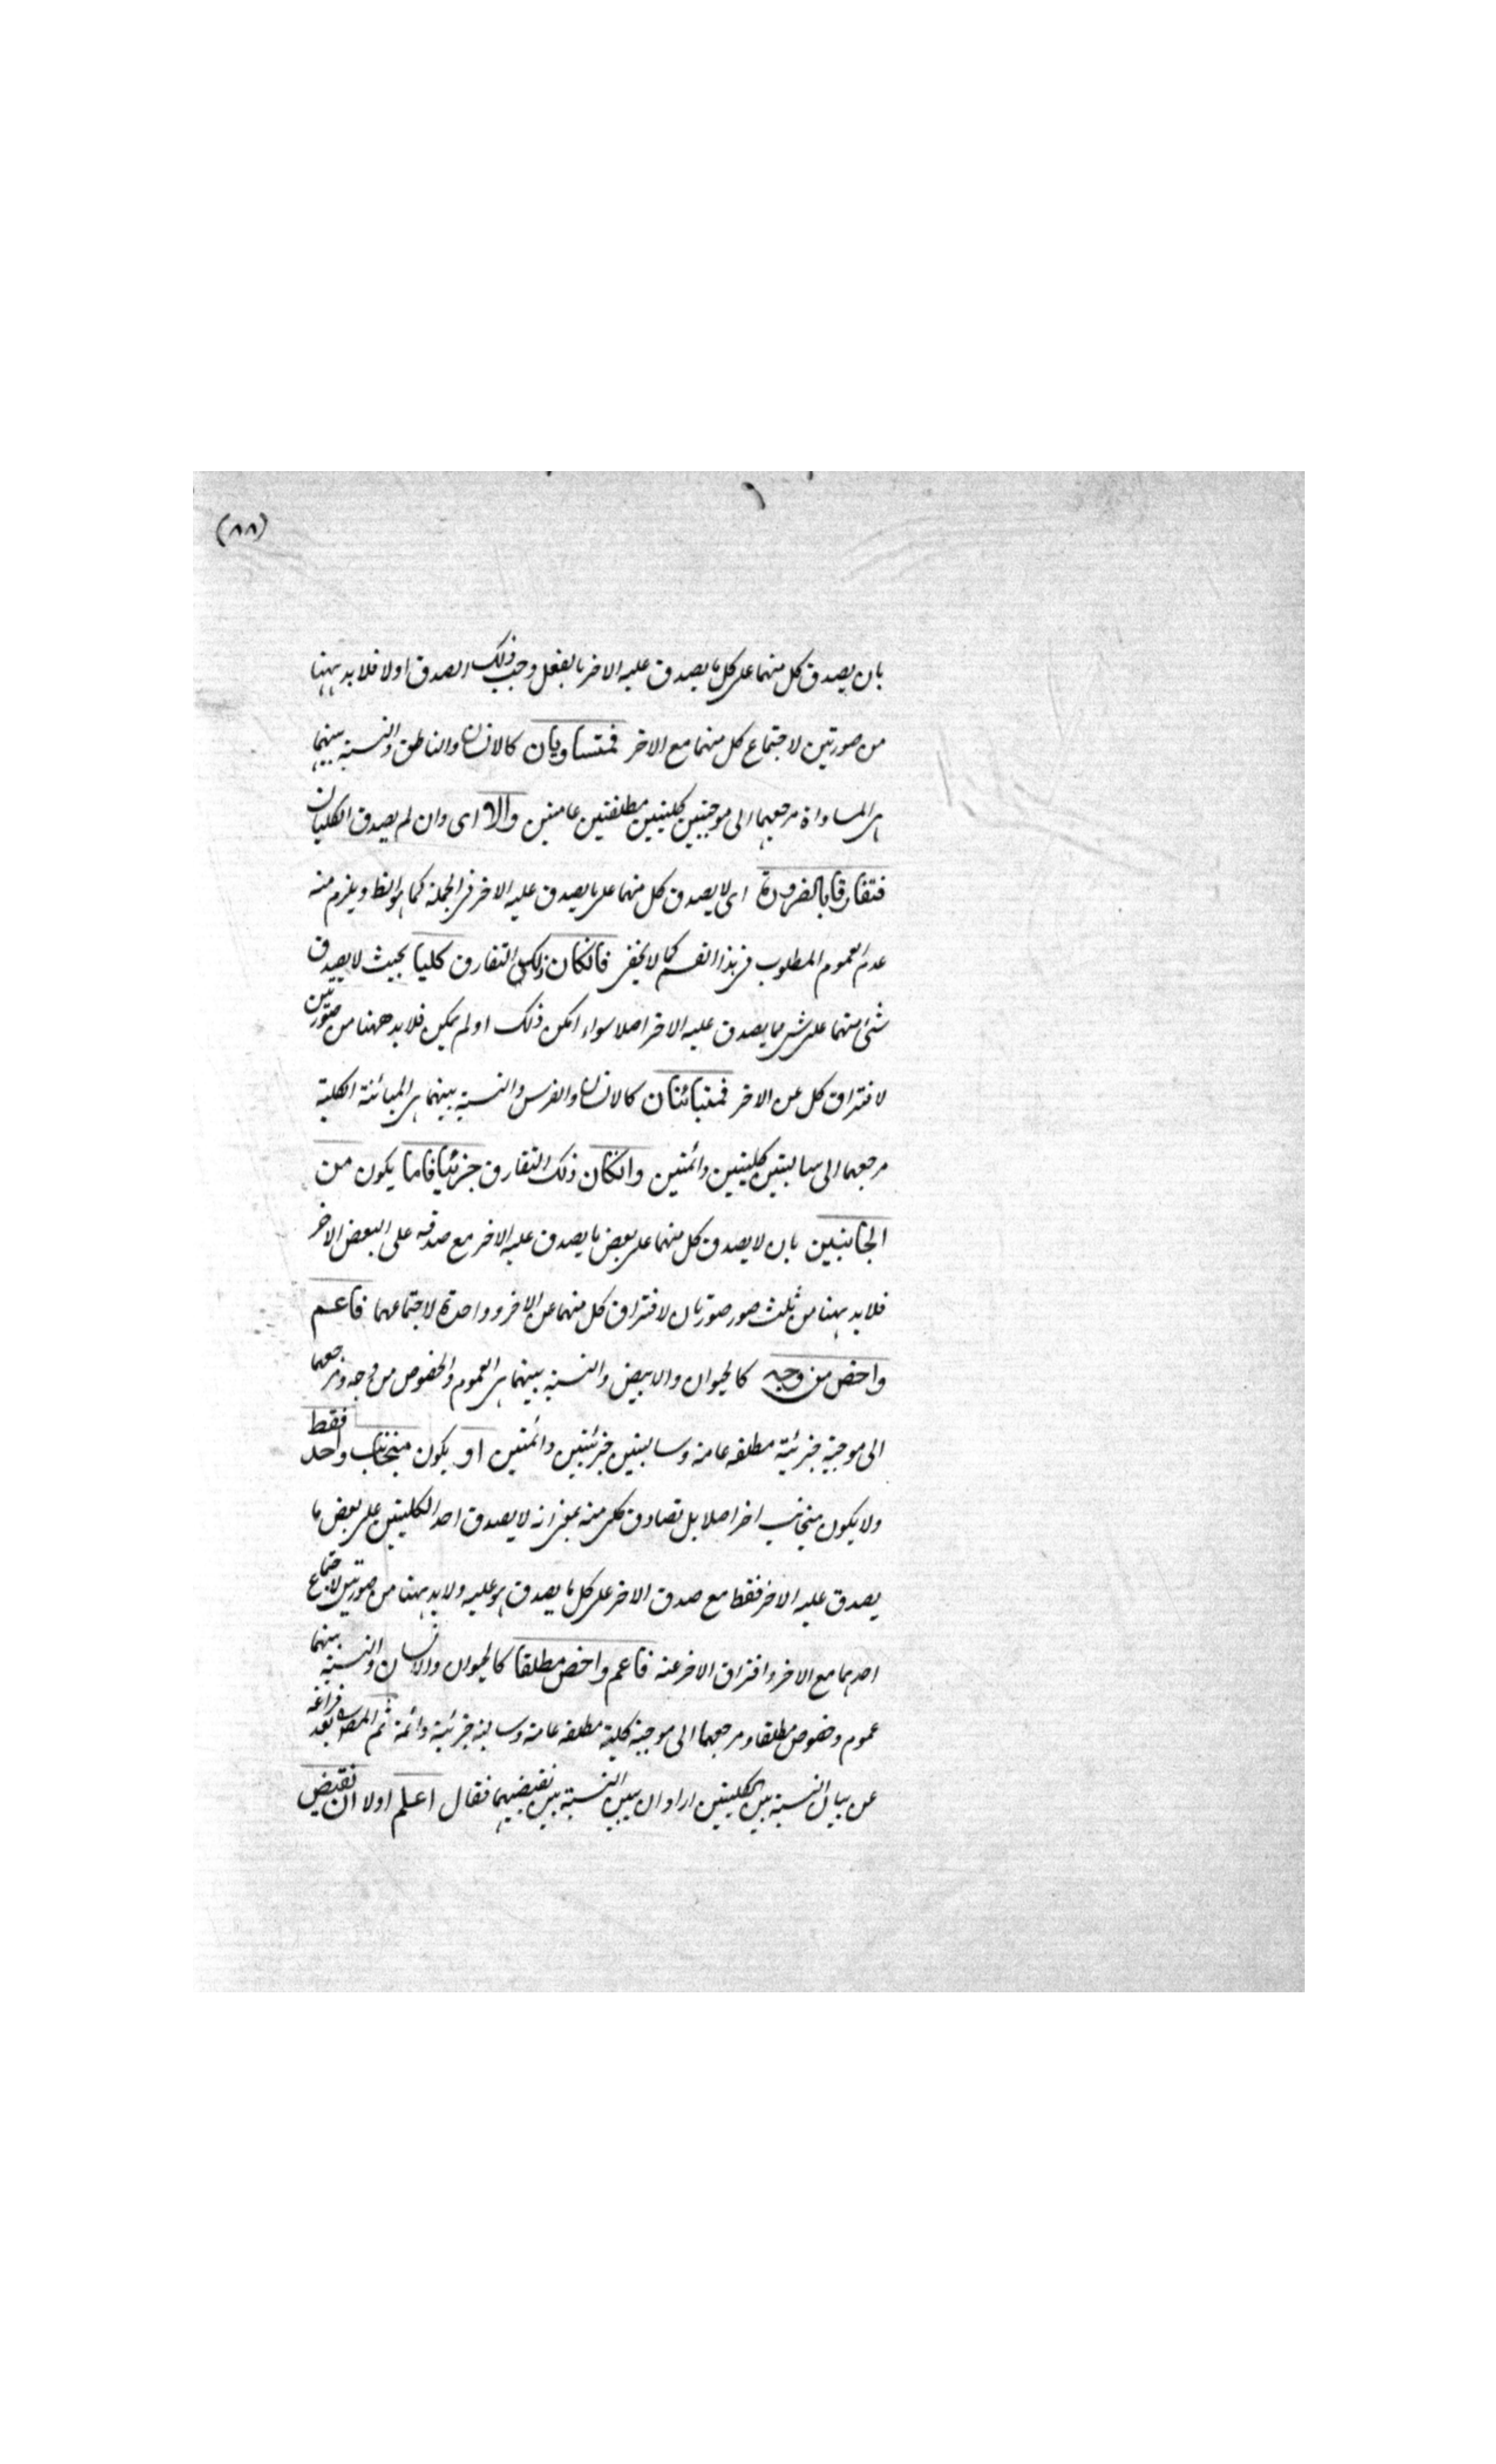 (٨٨)
بان يصدق كل منهما على كل ما يصدق عليه الاخر بالفعل وجب ذلك الصدق اولا فلا بد ههنا
من صورتين لاجتماع كل منهما مع الاخر فمتساويان كالانسان والناطق والنسبة بينهما
هي المساواة مرجعها الى موجبتين كليتين مطلقتين عامتين والا اى وان لم يصدق الكليان
فتفارقا بالضرورة اى لا يصدق كل منهما على ما يصدق عليه الاخر في الجملة كما هو الظ ويلزم منه
عدم العموم المطلوب في هذا القسم كما لا يخفى فانكان ذلك التفارق كليا بحيث لا يصدق
شئ منهما على شئ مما يصدق عليه الاخر اصلا سواء امكن ذلك او لم يمكن فلا بد ههنا من صورتين
لافتراق كل عن الاخر فمتبائنان كالانسان والفرس والنسبة بينهما هي المبائنة الكلية
مرجعها الى سالبتين كليتين دائمتين وانكان ذلك التفارق جزئيا فاما يكون من
الجانبين بان لا يصدق كل منهما على بعض ما يصدق عليه الاخر مع صدقه على البعض الاخر
فلا بد ههنا من ثلث صور صورتان لافتراق كل منهما عن الاخر وواحدة لاجتماعهما فاعم
واخص من وجه كالحيوان والابيض والنسبة بينهما هي العموم والخصوص من وجه ومرجعهما
الى موجبة جزئية مطلقه عامة وسالبتين جزئيتين دائمتين او يكون منجانب واحد فقط
ولا يكون منجانب اخر اصلا بل تصادق كلى منه بمعنى انه لا يصدق احد الكليتين على بعض ما
يصدق عليه الاخر فقط مع صدق الاخر على كل ما يصدق هو عليه ولا بد ههنا من صورتين لاجتماع
احدهما مع الاخر وافتراق الاخر عنه فاعم واخص مطلقا كالحيوان والانسان والنسبة بينهما
عموم وخصوص مطلقا ومرجعهما الى موجبة كلية مطلقه عامة وسالبة جزئية دائمة ثم المصه بعد فراغه
عن بيان النسبة بين الكليتين اراد ان يبين النسبة بين نقيضيهما فقال اعلم اولا ان نقيض